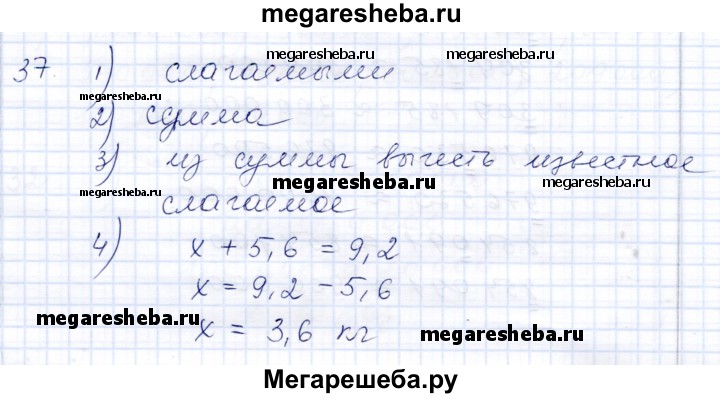 megaresheba.ru
37. 1) слагаемыми megaresheba.ru
megaresheba.ru
2) сумма
3) из суммы вычесть известное
megaresheba.ru megaresheba.ru
слагаемое
4) x + 5,6 = 9,2
x = 9,2 - 5,6
megaresheba.ru x = 3,6 кг megaresheba.ru
Мегарешеба.ру